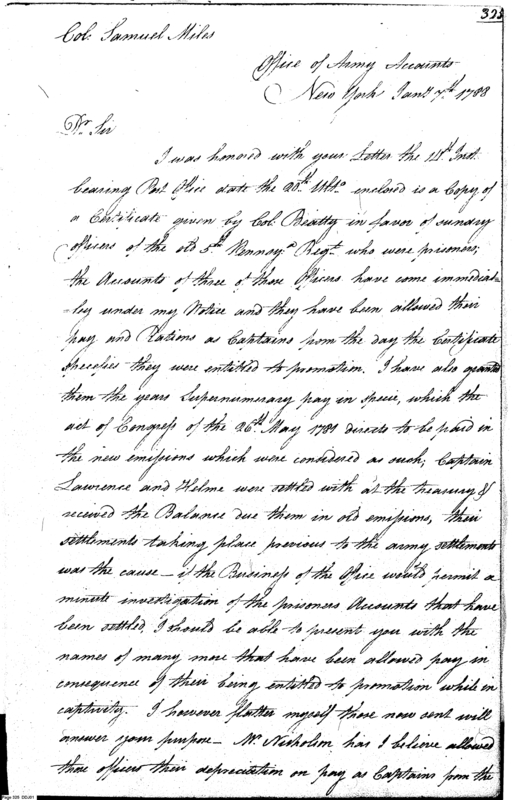 325
Col: Samuel Miles
Office of Army Accounts
New York Jany 7th 1788
Dr. Sir
I was honored with your Letter the 4th Inst.
bearing Post Office date the 28th Ulto enclosed is a Copy of
a Certificate given by Col: Beatty in favor of sundry
officers of the old 5th Pennsya Regt who were prisoners;
the Accounts of three of those Officers have come immediat=
=ly under my Notice and they have been allowed their
pay and Rations as Captains from the day the Certificate
specifies they were entitled to promotion. I have also granted
them the years Supernumerary pay in specie, which the
act of Congress of the 26th May 1781 directs to be paid in
the new emissions which were considered as such; Captain
Lawrence and Helme were settled with at the treasury &
received the Balance due them in old emissions, their
settlements taking place previous to the army settlements
was the cause — if the Business of the Office would permit a
minute investigation of the prisoners Accounts that have
been settled, I should be able to present you with the
names of many more that have been allowed pay in
consequence of their being entitled to promotion while in
captivity. I however flatter myself those now sent will
answer your purpose — Mr. Nicholson has I believe allowed
those officers their depreciation on pay as Captains from the